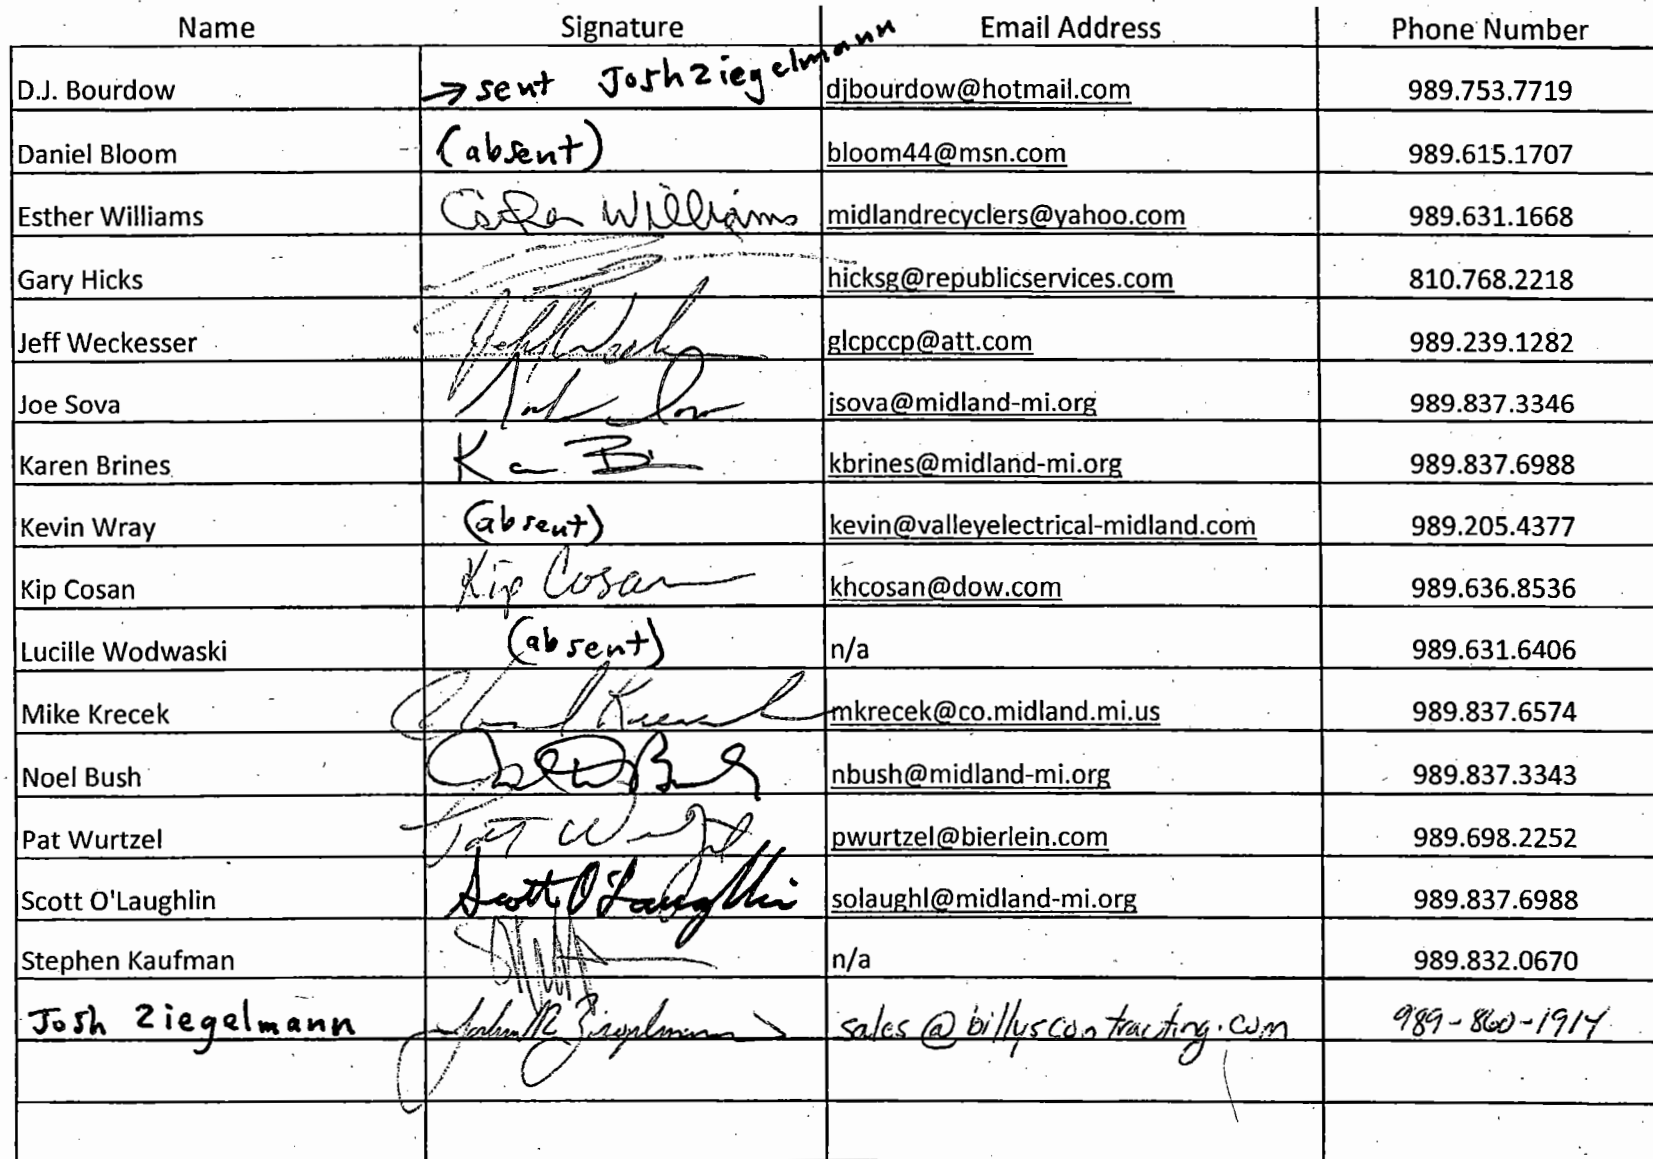 Name Signature Email Address Phone Number
D.J. Bourdow → sent Josh Ziegelmann djbourdow@hotmail.com 989.753.7719
Daniel Bloom (absent) bloom44@msn.com 989.615.1707
Esther Williams Esther Williams midlandrecyclers@yahoo.com 989.631.1668
Gary Hicks hicksg@republicservices.com 810.768.2218
Jeff Weckesser glcpccp@att.com 989.239.1282
Joe Sova jsova@midland-mi.org 989.837.3346
Karen Brines kbrines@midland-mi.org 989.837.6988
Kevin Wray (absent) kevin@valleyelectrical-midland.com 989.205.4377
Kip Cosan Kip Cosan khcosan@dow.com 989.636.8536
Lucille Wodwaski (absent) n/a 989.631.6406
Mike Krecek mkrecek@co.midland.mi.us 989.837.6574
Noel Bush nbush@midland-mi.org 989.837.3343
Pat Wurtzel pwurtzel@bierlein.com 989.698.2252
Scott O'Laughlin Scott O'Laughlin solaughl@midland-mi.org 989.837.6988
Stephen Kaufman n/a 989.832.0670
Josh Ziegelmann sales@billyscontracting.com 989-860-1914